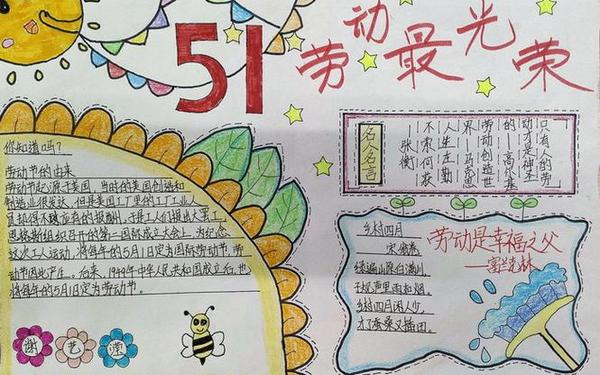 51
劳动最光荣
你知道吗?
劳动节的由来
劳动节起源于美国,当时的美国创造和
制造业很发达,但是美国工厂里的工厂工人
得不到应有的报酬,于是工人们提出大罢工。
恩格斯组织召开的第一国际成立大会上,为纪念
这次工人运动,将每年的5月1日定为国际劳动节,劳
动节因此产生。后来,1949年中华人民共和国成立后,也
将每年的5月1日定为劳动节。
谢艺滢
名人名言
只有人的劳
动才是神圣
的——高尔基
劳动创造世
界——马克思
人生在勤
不索何获
——张衡
乡村四月
宋 翁卷
绿遍山原白满川,
子规声里雨如烟。
乡村四月闲人少,
才了蚕桑又插田。
劳动是幸福之父
——富兰克林